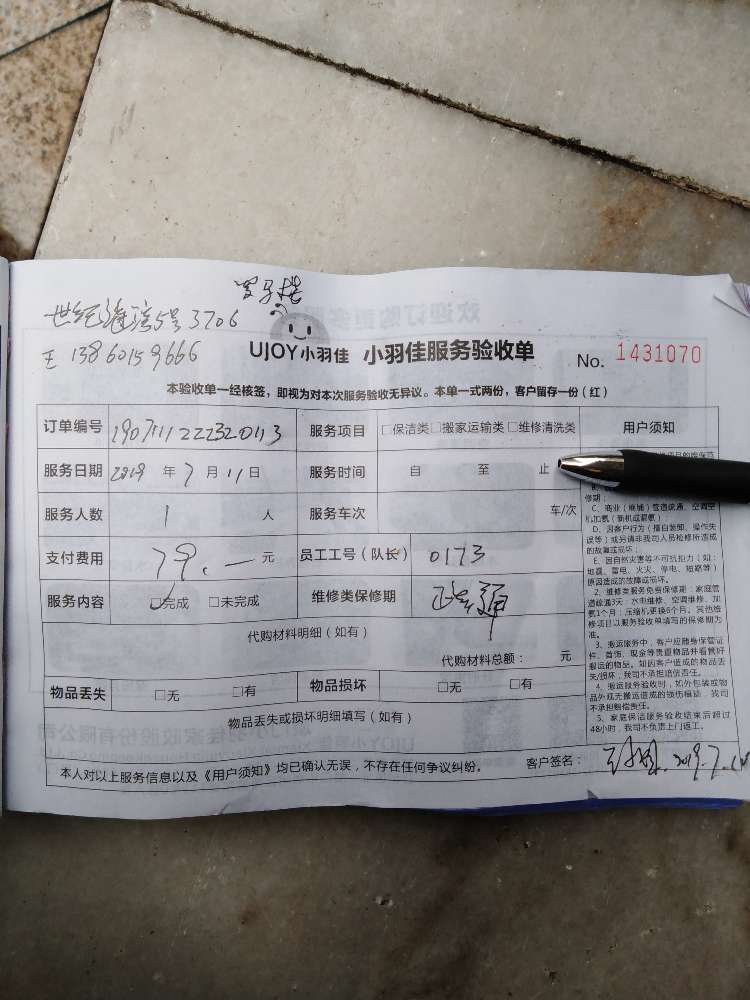 世纪海湾5号3706
王 13860159666
UJOY小羽佳 小羽佳服务验收单 No. 1431070
本验收单一经核签，即视为对本次服务验收无异议。本单一式两份，客户留存一份（红）
订单编号 服务项目 □保洁类□搬家运输类□维修清洗类 用户须知
服务日期 2019 年 7 月 11 日 服务时间 自 至 止
服务人数 1 人 服务车次 车/次
支付费用 79.一 元 员工工号（队长） 0173
服务内容 □完成 □未完成 维修类保修期
代购材料明细（如有）
代购材料总额： 元
物品丢失 □无 □有 物品损坏 □无 □有
物品丢失或损坏明细填写（如有）
本人对以上服务信息以及《用户须知》均已确认无误，不存在任何争议纠纷。 客户签名： 2019.7.
修期；
C、商业（商铺）管道疏通、空调空
机加氨（新机或漏氨）
D、因客户行为（擅自装卸、操作失
误等）或另请非我司人员检修所造成
的故障或损坏；
E、因自然灾害等不可抗拒力（如：
地震、雷电、火灾、停电、短路等）
原因造成的故障或损坏。
2、维修类服务免费保修期：家庭管
道疏通3天；水电维修、空调维修、加
氨1个月；压缩机更换6个月。其他维
修项目以服务验收单填写的保修期为
准。
3、搬运服务中，客户应随身保管证
件、首饰、现金等贵重物品并看管好
搬运的物品。如因客户造成的物品丢
失/损坏，我司不承担赔偿责任。
4、搬运服务验收时，如外包装或物
品外观无搬运造成的损伤痕迹，我司
不承担赔偿责任。
5、家庭保洁服务验收结束后超过
48小时，我司不负责上门返工。